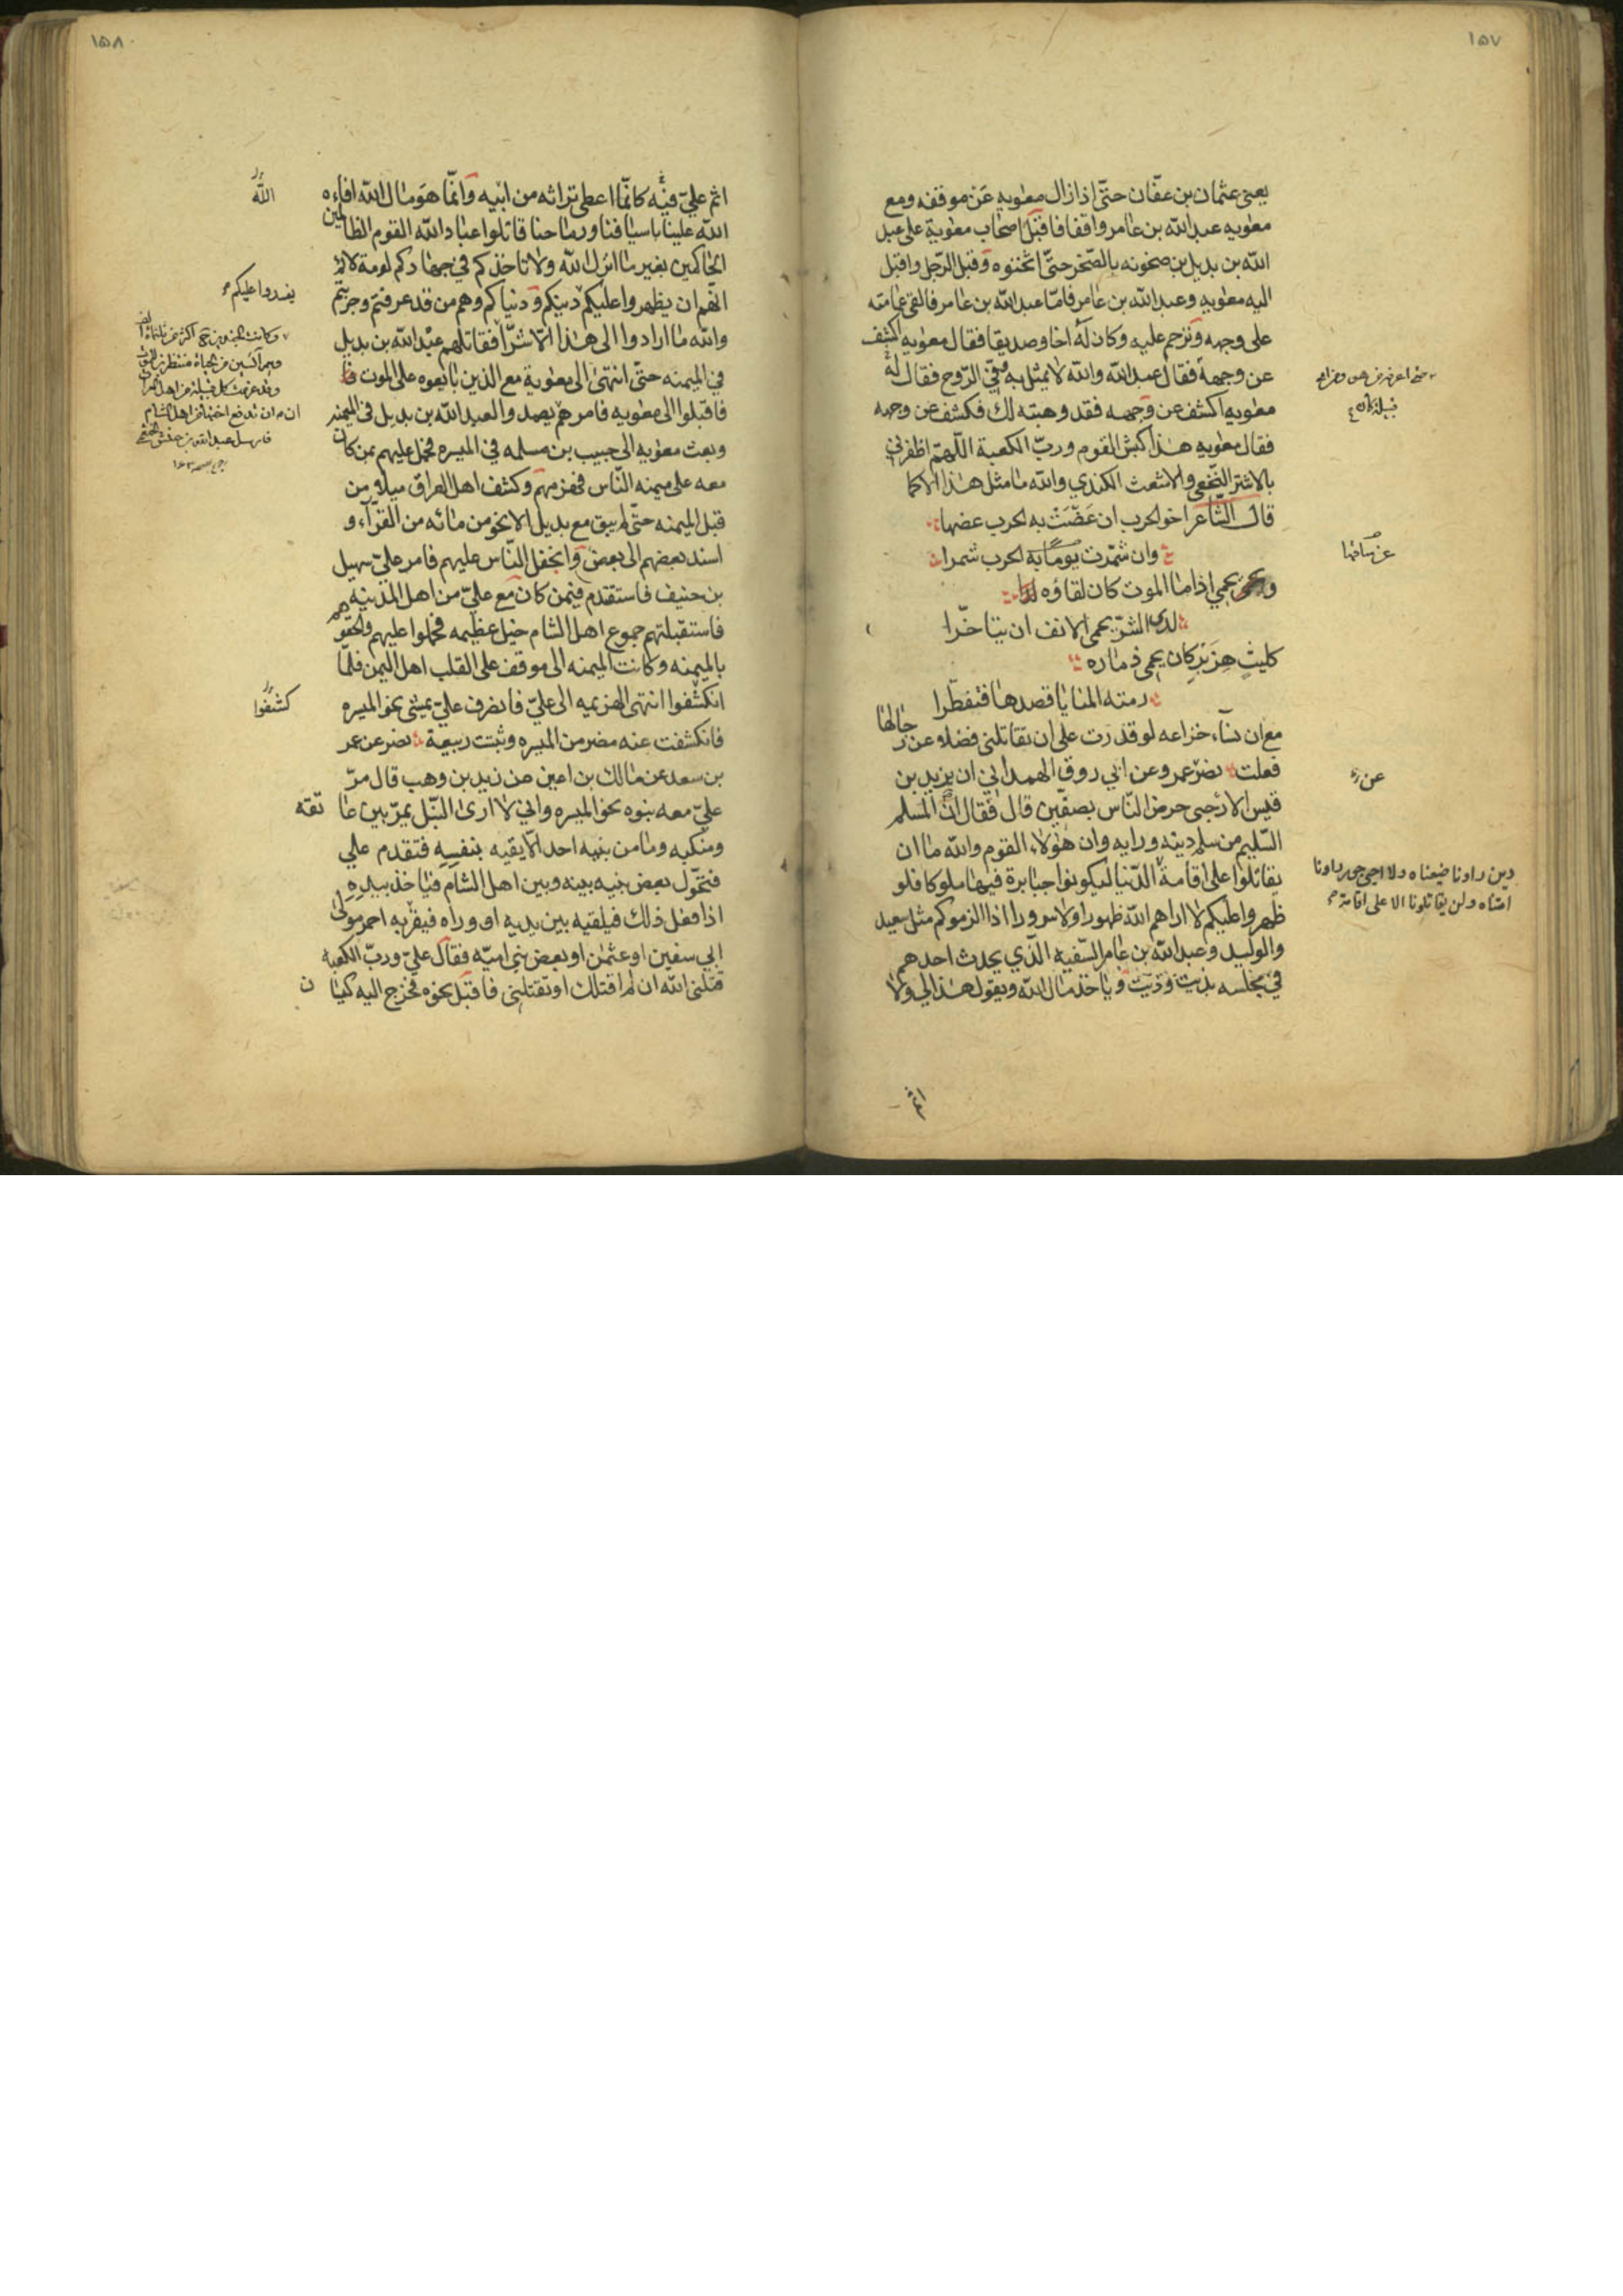 ١٥٧
يعنى عثمان بن عفّان حتّى اذا زال معويه عن موقفه ومع
معويه عبد الله بن عامر واقفا فاقبل اصحاب معوية على عبد
الله بن بديل بن يرضخونه بالصّخر حتّى اثخنوه وقتل الرّجل واقبل
اليه معويه وعبد الله بن عامر فامّا عبد الله بن عامر فالقى عمامته
على وجهه وترحم عليه وكان له اخا وصديقا فقال معويه اكشف
عن وجهه فقال عبد الله والله لا يمثل به وفيّ الرّوح فقال له
معويه اكشف عن وجهه فقد وهبته لك فكشف عن وجهه
فقال معويه هذا كبش القوم وربّ الكعبة اللّهمّ اظفرني
بالاشتر النّخعي والاشعث الكندي والله ما مثل هذا الا كما
قال الشّاعر اخو الحرب ان عَضّتْ به الحرب عضها
وان شمّرت يوما به الحرب شمرا
ويحمي اذا ما الموت كان لقاؤه
لدى الشرّ يحمي الانف ان يتاخّرا
كليثٍ هِزَبْرٍ كان يحمي ذماره
رمته المنايا قصدها فتقطّرا
مع ان نسآء خزاعه لو قدرت على ان تقاتلني فضلا عن رجالها
فعلت نصر عمر وعن ابي روق الهمداني ان يزيد بن
قيس الارحبي حرض النّاس بصفّين قال فقال انّ المسلم
السّليم من سلم دينه ورايه وان هؤلاء القوم والله ما ان
يقاتلوا على اقامة الدّنيا ليكونوا جبابرة فيها ملوكا فلو
ظهروا عليكم لا اراهم الله ظهورا ولا سرورا اذا الزموكم مثل سعيد
والوليد وعبد الله بن عامر السّفيه الّذي يحدث احدهم
في مجلسه بذيت وذيت وياخذ مال الله ويقول هذا لي ولا
عن ساقها
عن
دين راونا ضيعناه ولا احيى حق راونا
امتناه ولن يقاتلونا الا على اقامة
١٥٨
اثم عليّ فيه كانّما اعطى تراثه من ابيه وانّما هو مال الله افاءه
الله علينا باسيافنا ورماحنا قاتلوا عباد الله القوم الظالمين
الحاكمين بغير ما انزل الله ولا تاخذكم في جهادكم لومة لائم
انّهم ان يظهروا عليكم دينكم ودنياكم وهم من قد عرفتم وجربتم
والله ما ارادوا الى هذا الّا شرّا فقاتلهم عبد الله بن بديل
في الميمنه حتّى انتهى الى معوية مع الّذين بايعوه على الموت
فاقبلوا الى معويه فامرهم يصمدوا لعبد الله بن بديل في الميمنه
وبعث معويه الى حبيب بن مسلمه في الميسره فحمل عليهم بمن كان
معه على ميمنه النّاس فهزمهم وكشف اهل العراق ميلا من
قبل الميمنه حتّى لم يبق مع بديل الا نحو من مائه من القرّآء و
اسند بعضهم الى بعض وانجفل النّاس عليهم فامر عليّ سهيل
بن حنيف فاستقدم فيمن كان مع عليّ من اهل المدينه
فاستقبلتهم جموع اهل الشام خيل عظيمه فحملوا عليهم والحقوهم
بالميمنه وكانت الميمنه الى موقف على القلب اهل اليمن فلمّا
انكشفوا انتهى الهزيمه الى عليّ فانصرف عليّ يمشي نحو الميسره
فانكشفت عنه مضر من الميسره وثبتت ربيعة نصر عن عمر
بن سعد عن مالك بن اعين عن زيد بن وهب قال مرّ
عليّ معه بنوه نحو الميسره واني لا ارى النّبل يمرّ بين عاتقه
ومنكبه وما من بنيه احد الّا يقيه بنفسه فتقدم علي
فتحوّل بعض بنيه بينه وبين اهل الشام فياخذ بيده
اذا فعل ذلك فيلقيه بين يديه او وراه فيقربه احمر مولى
ابي سفين او عثمن او بعض بني اميّه فقال عليّ وربّ الكعبه
قتلني الله ان لم اقتلك او تقتلني فاقبل نحوه فخرج اليه كيسان
الله
يفسدوا عليكم
كشفوا